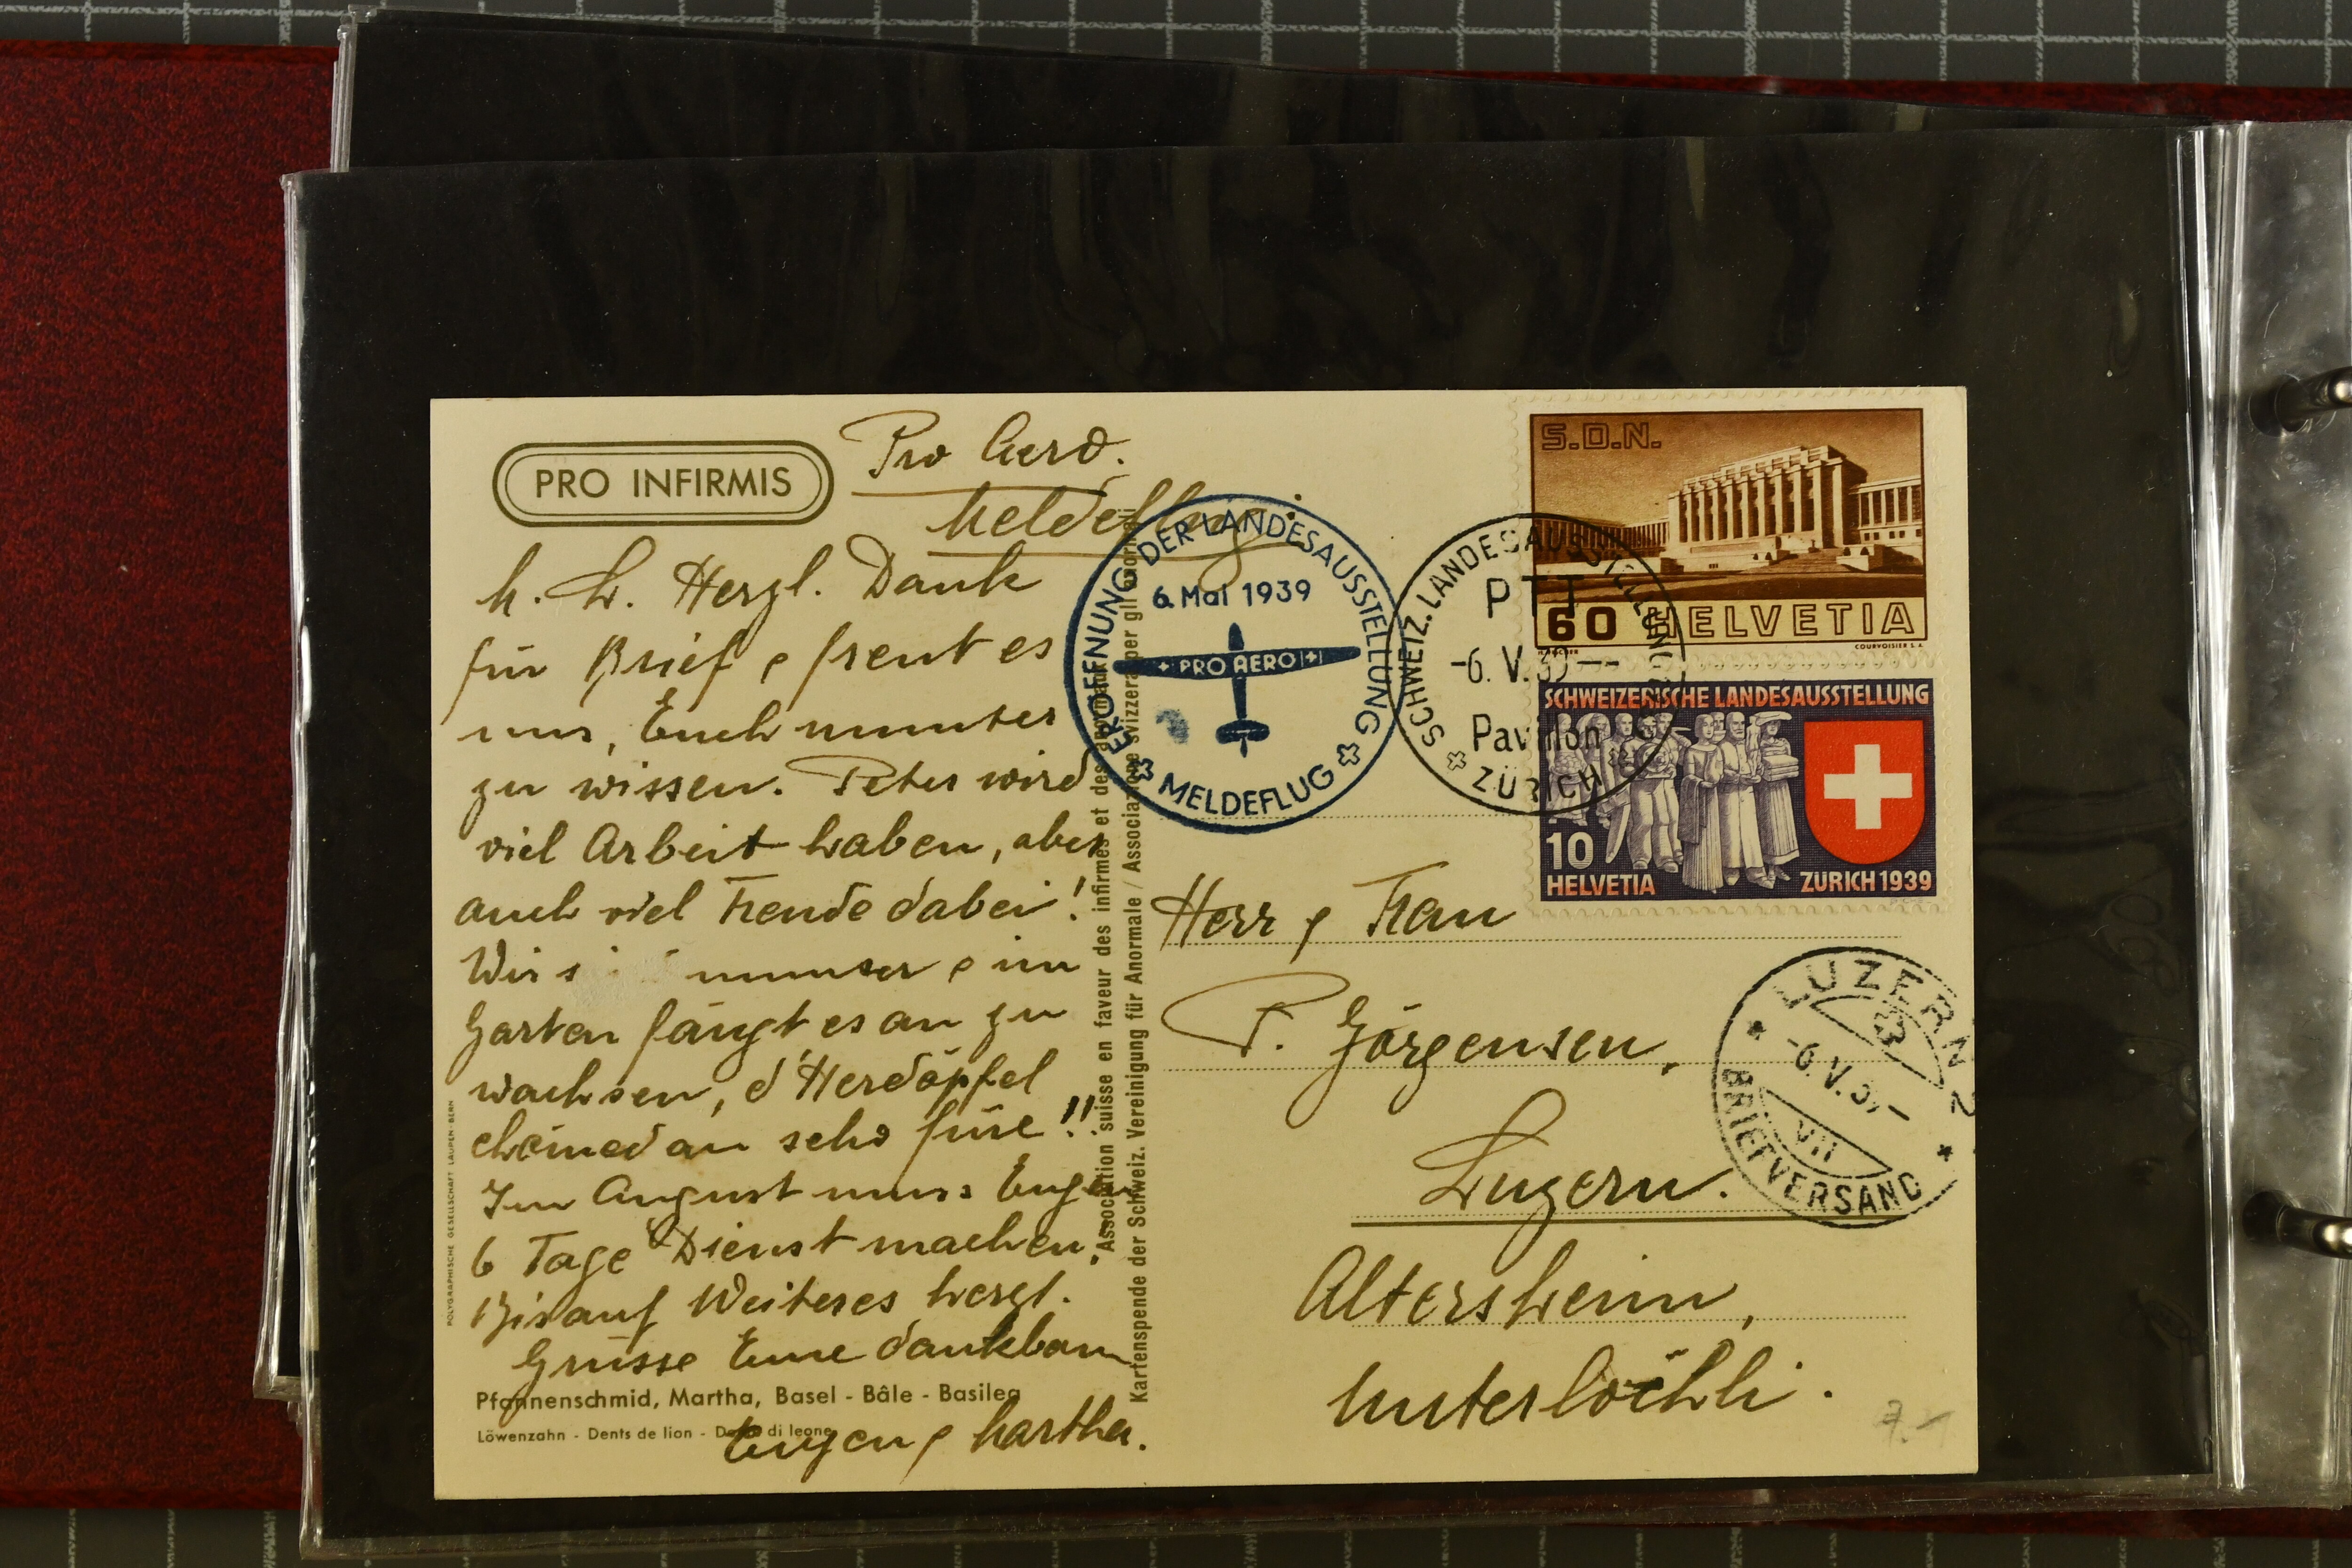 PRO INFIRMIS
Pro Aero.
Meldeflug.
M. L. Herzl. Dank
für Brief & freut es
uns, Euch munter
zu wissen. Peter wird
viel Arbeit haben, aber
auch viel Freude dabei!
Wir munter & im
Garten fängt es an zu
wachsen, d'Herdöpfel
chömed au scho füre!!
Im August muss Eugen
6 Tage Dienst machen.
Bis auf Weiteres herzl.
Grüsse Eure dankbaren
Eugen & Martha.
Pfannenschmid, Martha, Basel - Bâle - Basilea
Löwenzahn - Dents de lion - Dente di leone
POLYGRAPHISCHE GESELLSCHAFT LAUPEN-BERN
Association suisse en faveur des infirmes et des anormaux
Kartenspende der Schweiz. Vereinigung für Anormale / Associazione svizzera per gli anormali
ERÖFFNUNG DER LANDESAUSSTELLUNG
6. Mai 1939
PRO AERO
MELDEFLUG
SCHWEIZ. LANDESAUSSTELLUNG
PTT
-6. V. 39--
Pavillon
ZÜRICH
S.D.N.
60 HELVETIA
COURVOISIER S.A.
SCHWEIZERISCHE LANDESAUSSTELLUNG
10
HELVETIA ZURICH 1939
Herr & Frau
P. Jörgensen,
Luzern.
Altersheim,
Unterlöchli.
LUZERN 2
-6. V. 39-
VII
BRIEFVERSAND